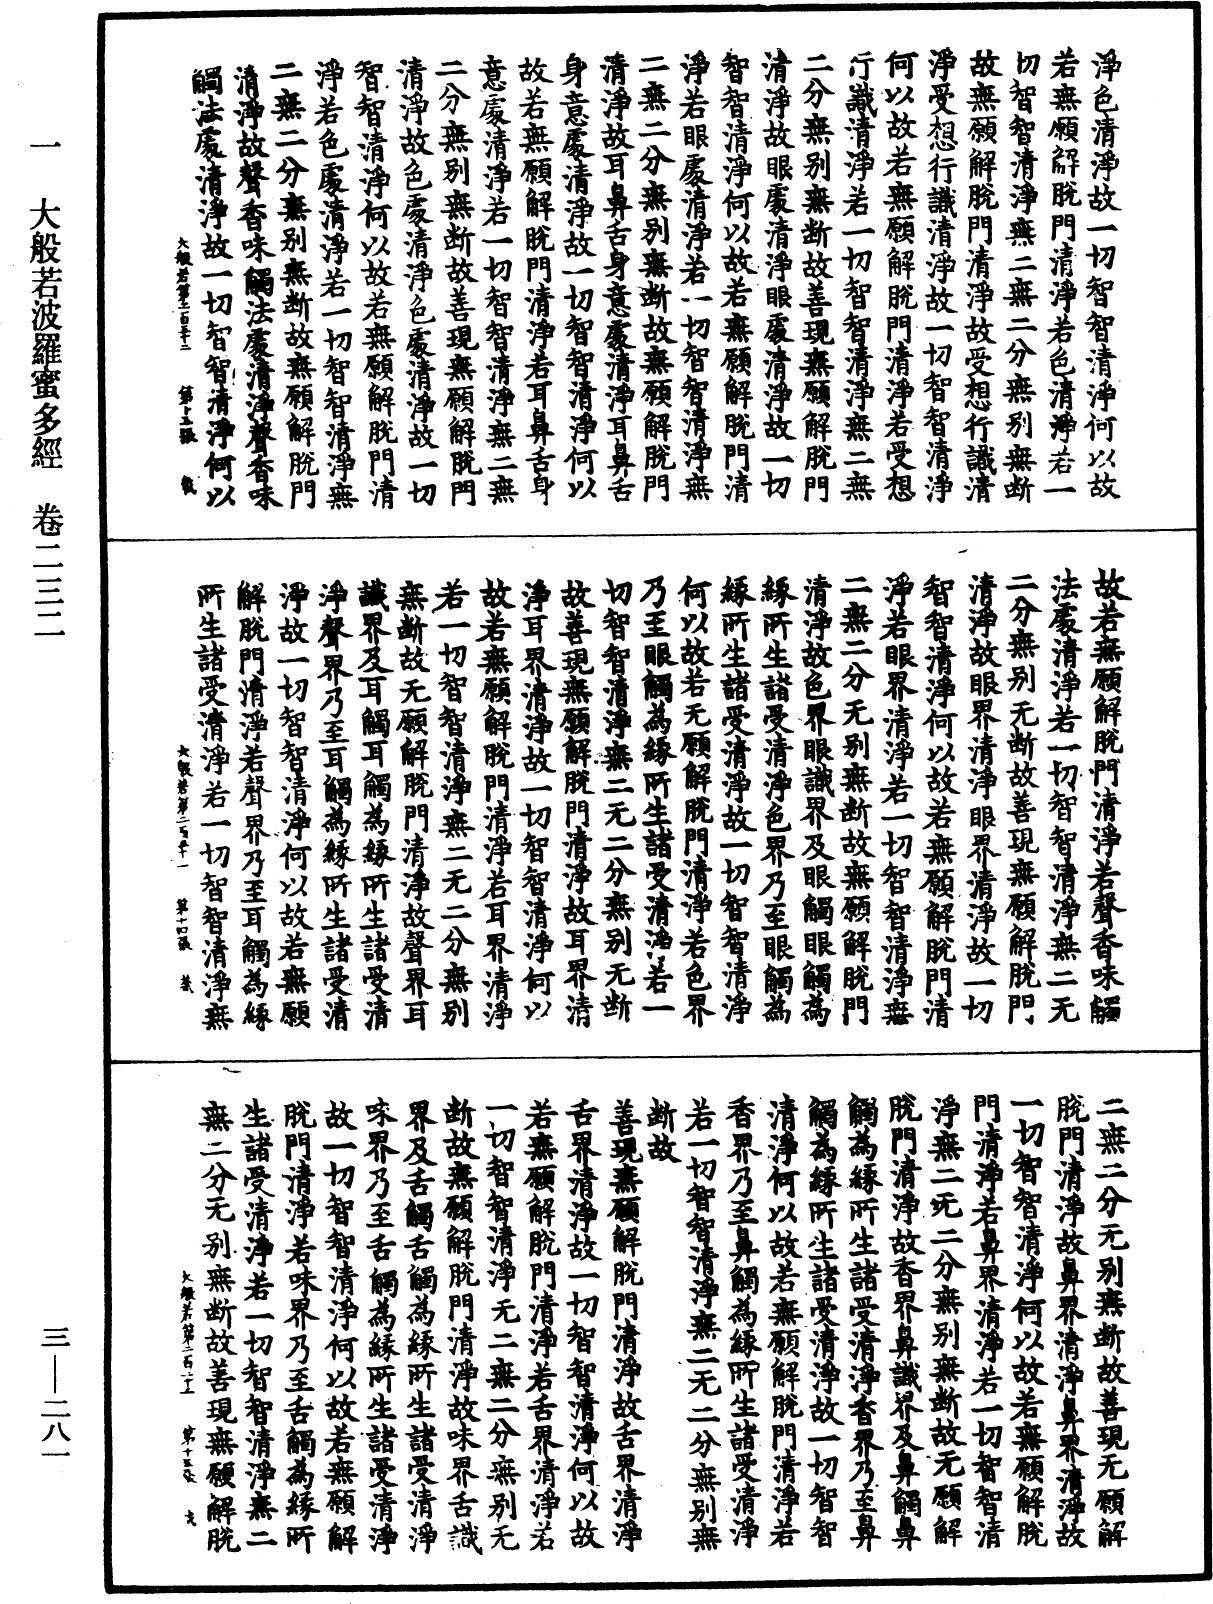 一 大般若波羅蜜多經 卷二三二
三—二八一
淨色清淨故一切智智清淨何以故
若無願解脫門清淨若色清淨若一
切智智清淨無二無二分無別無断
故無願解脫門清淨故受想行識清
淨受想行識清淨故一切智智清淨
何以故若無願解脫門清淨若受想
行識清淨若一切智智清淨無二無
二分無別無断故善現無願解脫門
清淨故眼處清淨眼處清淨故一切
智智清淨何以故若無願解脫門清
淨若眼處清淨若一切智智清淨無
二無二分無別無断故無願解脫門
清淨故耳鼻舌身意處清淨耳鼻舌
身意處清淨故一切智智清淨何以
故若無願解脫門清淨若耳鼻舌身
意處清淨若一切智智清淨無二無
二分無別無断故善現無願解脫門
清淨故色處清淨色處清淨故一切
智智清淨何以故若無願解脫門清
淨若色處清淨若一切智智清淨無
二無二分無別無断故無願解脫門
清淨故聲香味觸法處清淨聲香味
觸法處清淨故一切智智清淨何以
故若無願解脫門清淨若聲香味觸
法處清淨若一切智智清淨無二无
二分無別无断故善現無願解脫門
清淨故眼界清淨眼界清淨故一切
智智清淨何以故若無願解脫門清
淨若眼界清淨若一切智智清淨無
二無二分无別無断故無願解脫門
清淨故色界眼識界及眼觸眼觸為
緣所生諸受清淨色界乃至眼觸為
緣所生諸受清淨故一切智智清淨
何以故若无願解脫門清淨若色界
乃至眼觸為緣所生諸受清淨若一
切智智清淨無二无二分無別无断
故善現無願解脫門清淨故耳界清
淨耳界清淨故一切智智清淨何以
故若無願解脫門清淨若耳界清淨
若一切智智清淨無二无二分無別
無断故无願解脫門清淨故聲界耳
識界及耳觸耳觸為緣所生諸受清
淨聲界乃至耳觸為緣所生諸受清
淨故一切智智清淨何以故若無願
解脫門清淨若聲界乃至耳觸為緣
所生諸受清淨若一切智智清淨無
二無二分无別無断故善現无願解
脫門清淨故鼻界清淨鼻界清淨故
一切智智清淨何以故若無願解脫
門清淨若鼻界清淨若一切智智清
淨無二无二分無別無断故无願解
脫門清淨故香界鼻識界及鼻觸鼻
觸為緣所生諸受清淨香界乃至鼻
觸為緣所生諸受清淨故一切智智
清淨何以故若無願解脫門清淨若
香界乃至鼻觸為緣所生諸受清淨
若一切智智清淨無二无二分無別無
断故
善現無願解脫門清淨故舌界清淨
舌界清淨故一切智智清淨何以故
若無願解脫門清淨若舌界清淨若
一切智智清淨无二無二分無別无
断故無願解脫門清淨故味界舌識
界及舌觸舌觸為緣所生諸受清淨
味界乃至舌觸為緣所生諸受清淨
故一切智智清淨何以故若無願解
脫門清淨若味界乃至舌觸為緣所
生諸受清淨若一切智智清淨無二
無二分无別無断故善現無願解脫